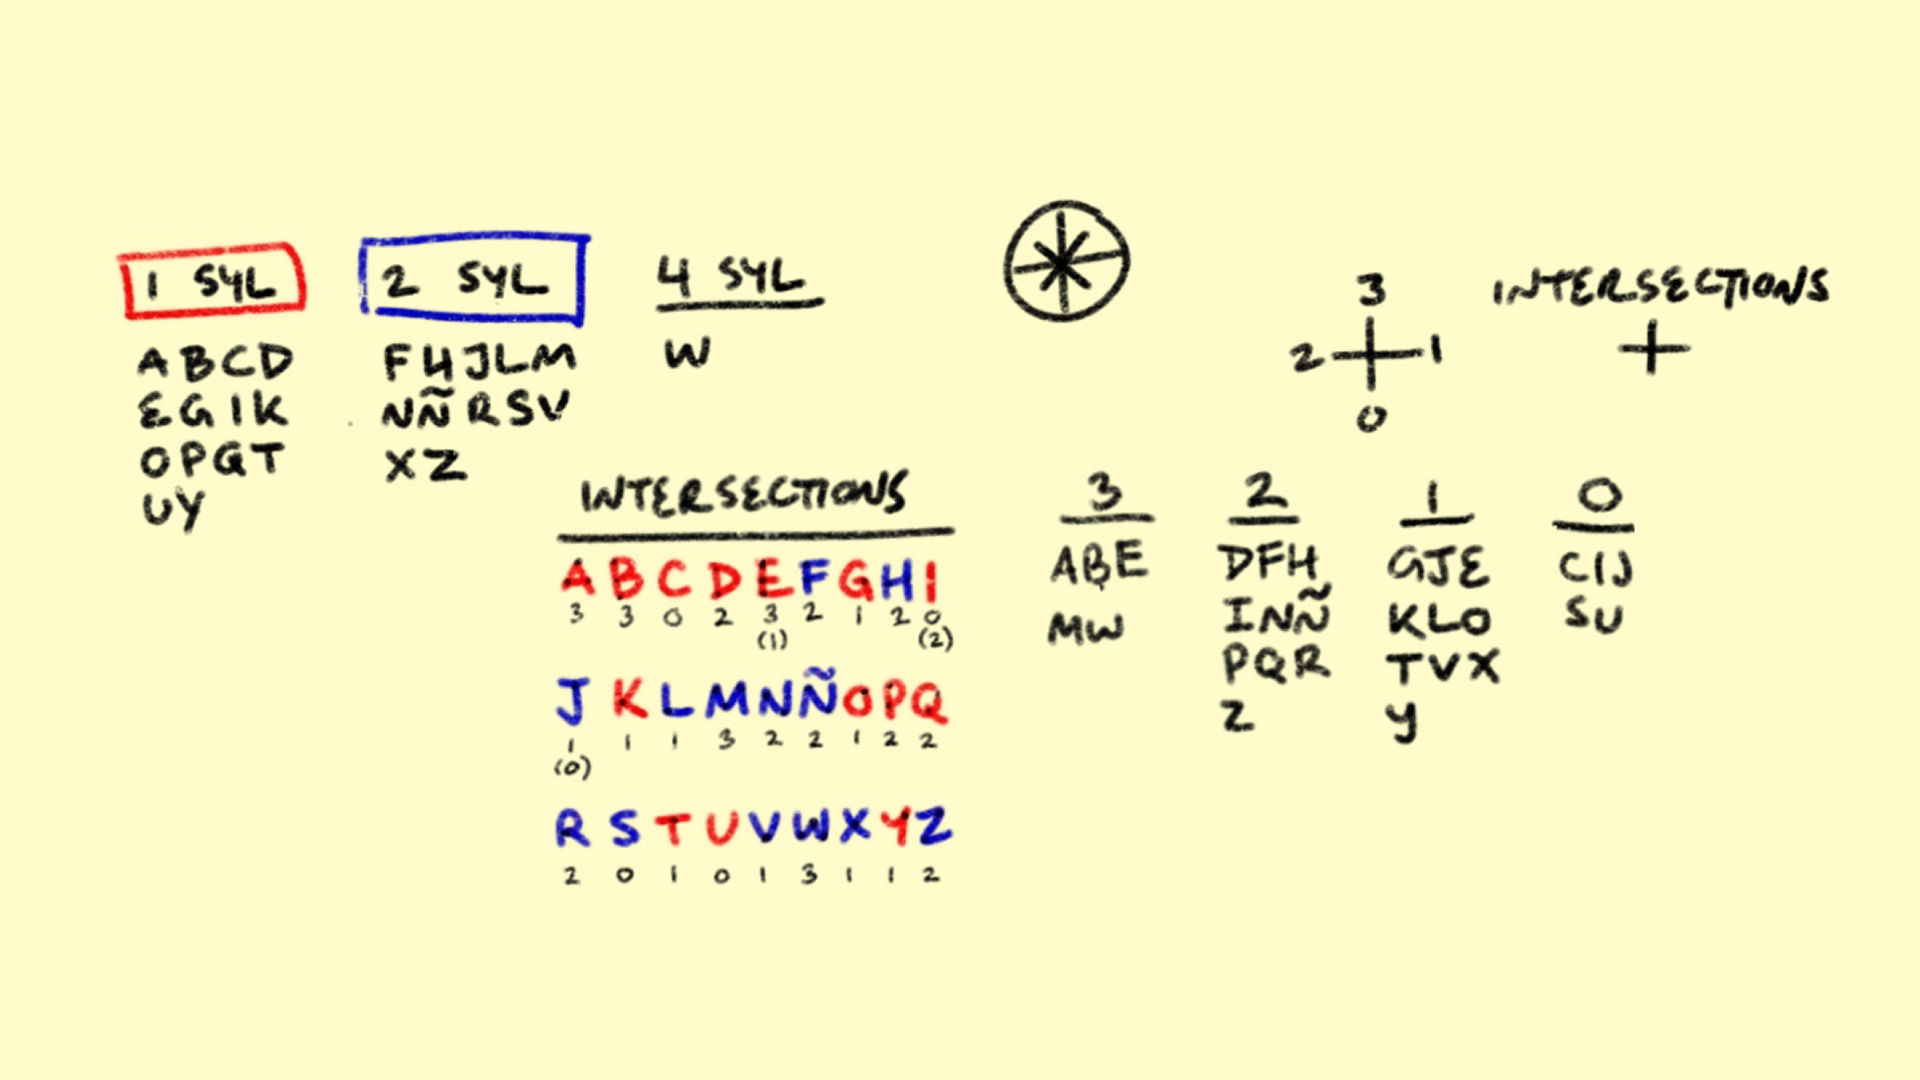 1 SYL
ABCD
EGIK
OPQT
UY
2 SYL
FHJLM
NÑRSV
XZ
4 SYL
W
INTERSECTIONS
A B C D E F G H I
3 3 0 2 3 2 1 2 0
(1) (2)
J K L M N Ñ O P Q
1 1 1 3 2 2 1 2 2
(0)
R S T U V W X Y Z
2 0 1 0 1 3 1 1 2
3
2 1
0
INTERSECTIONS
3
ABE
MW
2
DFH
INÑ
PQR
Z
1
GJE
KLO
TVX
Y
0
CIJ
SU